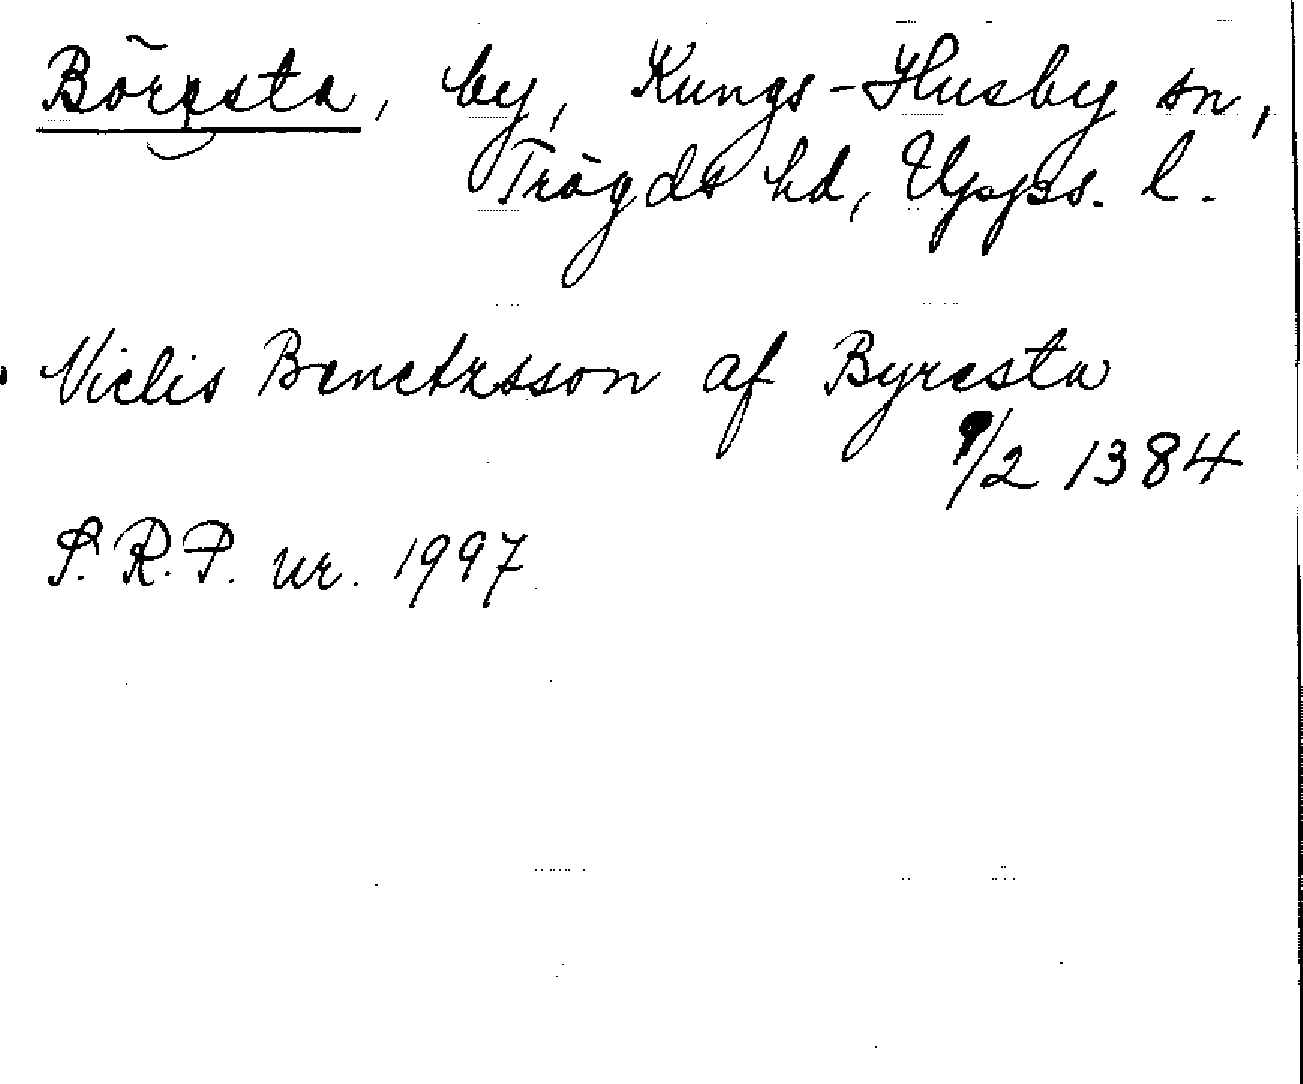 Böresta, by, Kungs-Husby sn,
Trögds hd, Upps. l.
Niclis Benctzsson af Byresta
9/2 1384
S.R.P. nr. 1997